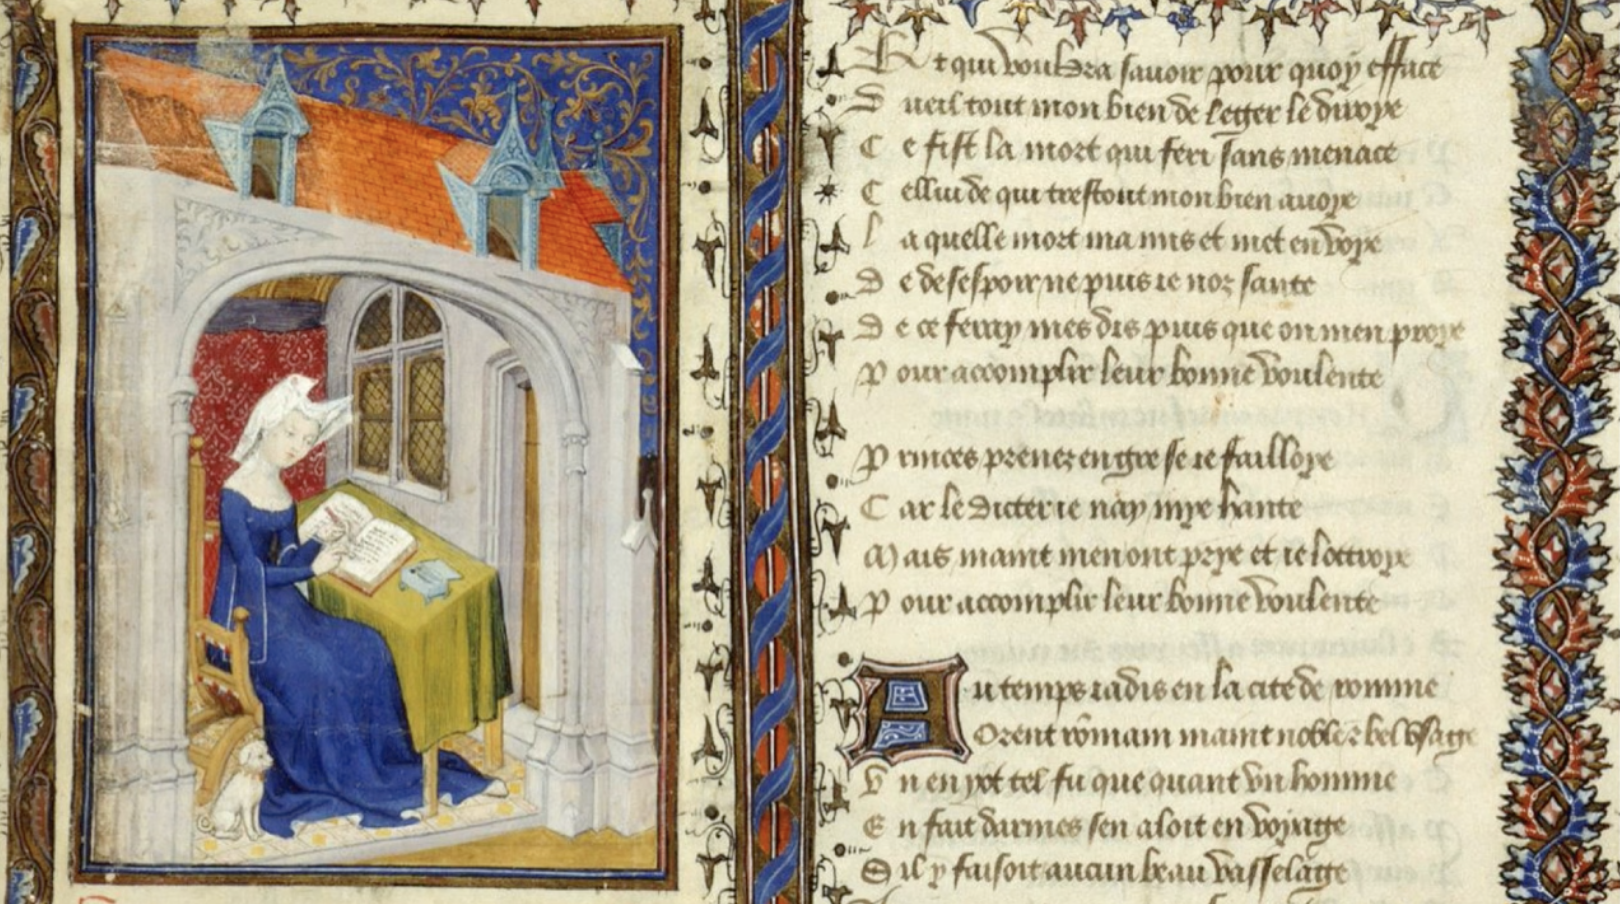 Et qui vouldra savoir pour quoy efface
Dueil tout mon bien de legier le diroye
Ce fist la mort qui feri sans menace
Cellui de qui trestout mon bien avoye
Laquelle mort ma mis et met en voye
De desespoir ne puis ie noz sante
De ce feray mes dis puis que on men proye
Pour accomplir leur bonne voulente
Princes prenez en gre se ie failloye
Car le dittier ie nay mye hante
Mais maint men ont prye et ie lottroye
Pour accomplir leur bonne voulente
Au temps iadis en la cite de romme
Orent rommain maint noble et bel usage
Un en yot tel fu que quant un homme
En fait darmes sen aloit en voyage
Sil y faisoit aucun beau vasselage